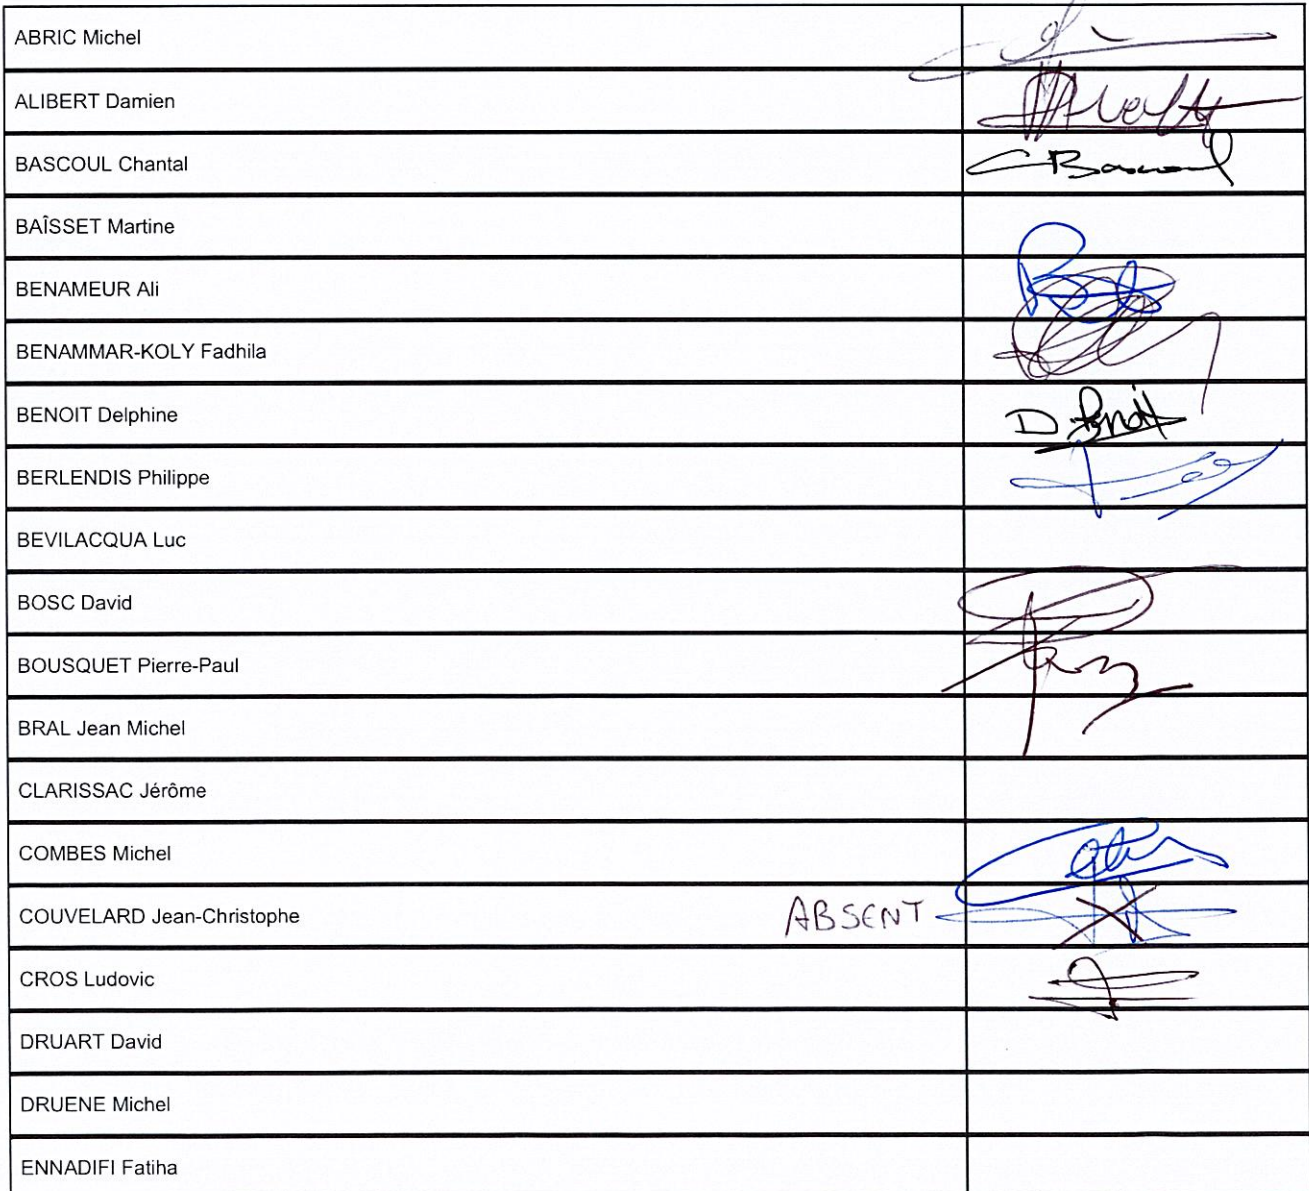 ABRIC Michel
ALIBERT Damien
BASCOUL Chantal
C Bascoul
BAÎSSET Martine
BENAMEUR Ali
BENAMMAR-KOLY Fadhila
BENOIT Delphine
D. Benoit
BERLENDIS Philippe
BEVILACQUA Luc
BOSC David
BOUSQUET Pierre-Paul
BRAL Jean Michel
CLARISSAC Jérôme
COMBES Michel
COUVELARD Jean-Christophe ABSENT
CROS Ludovic
DRUART David
DRUENE Michel
ENNADIFI Fatiha